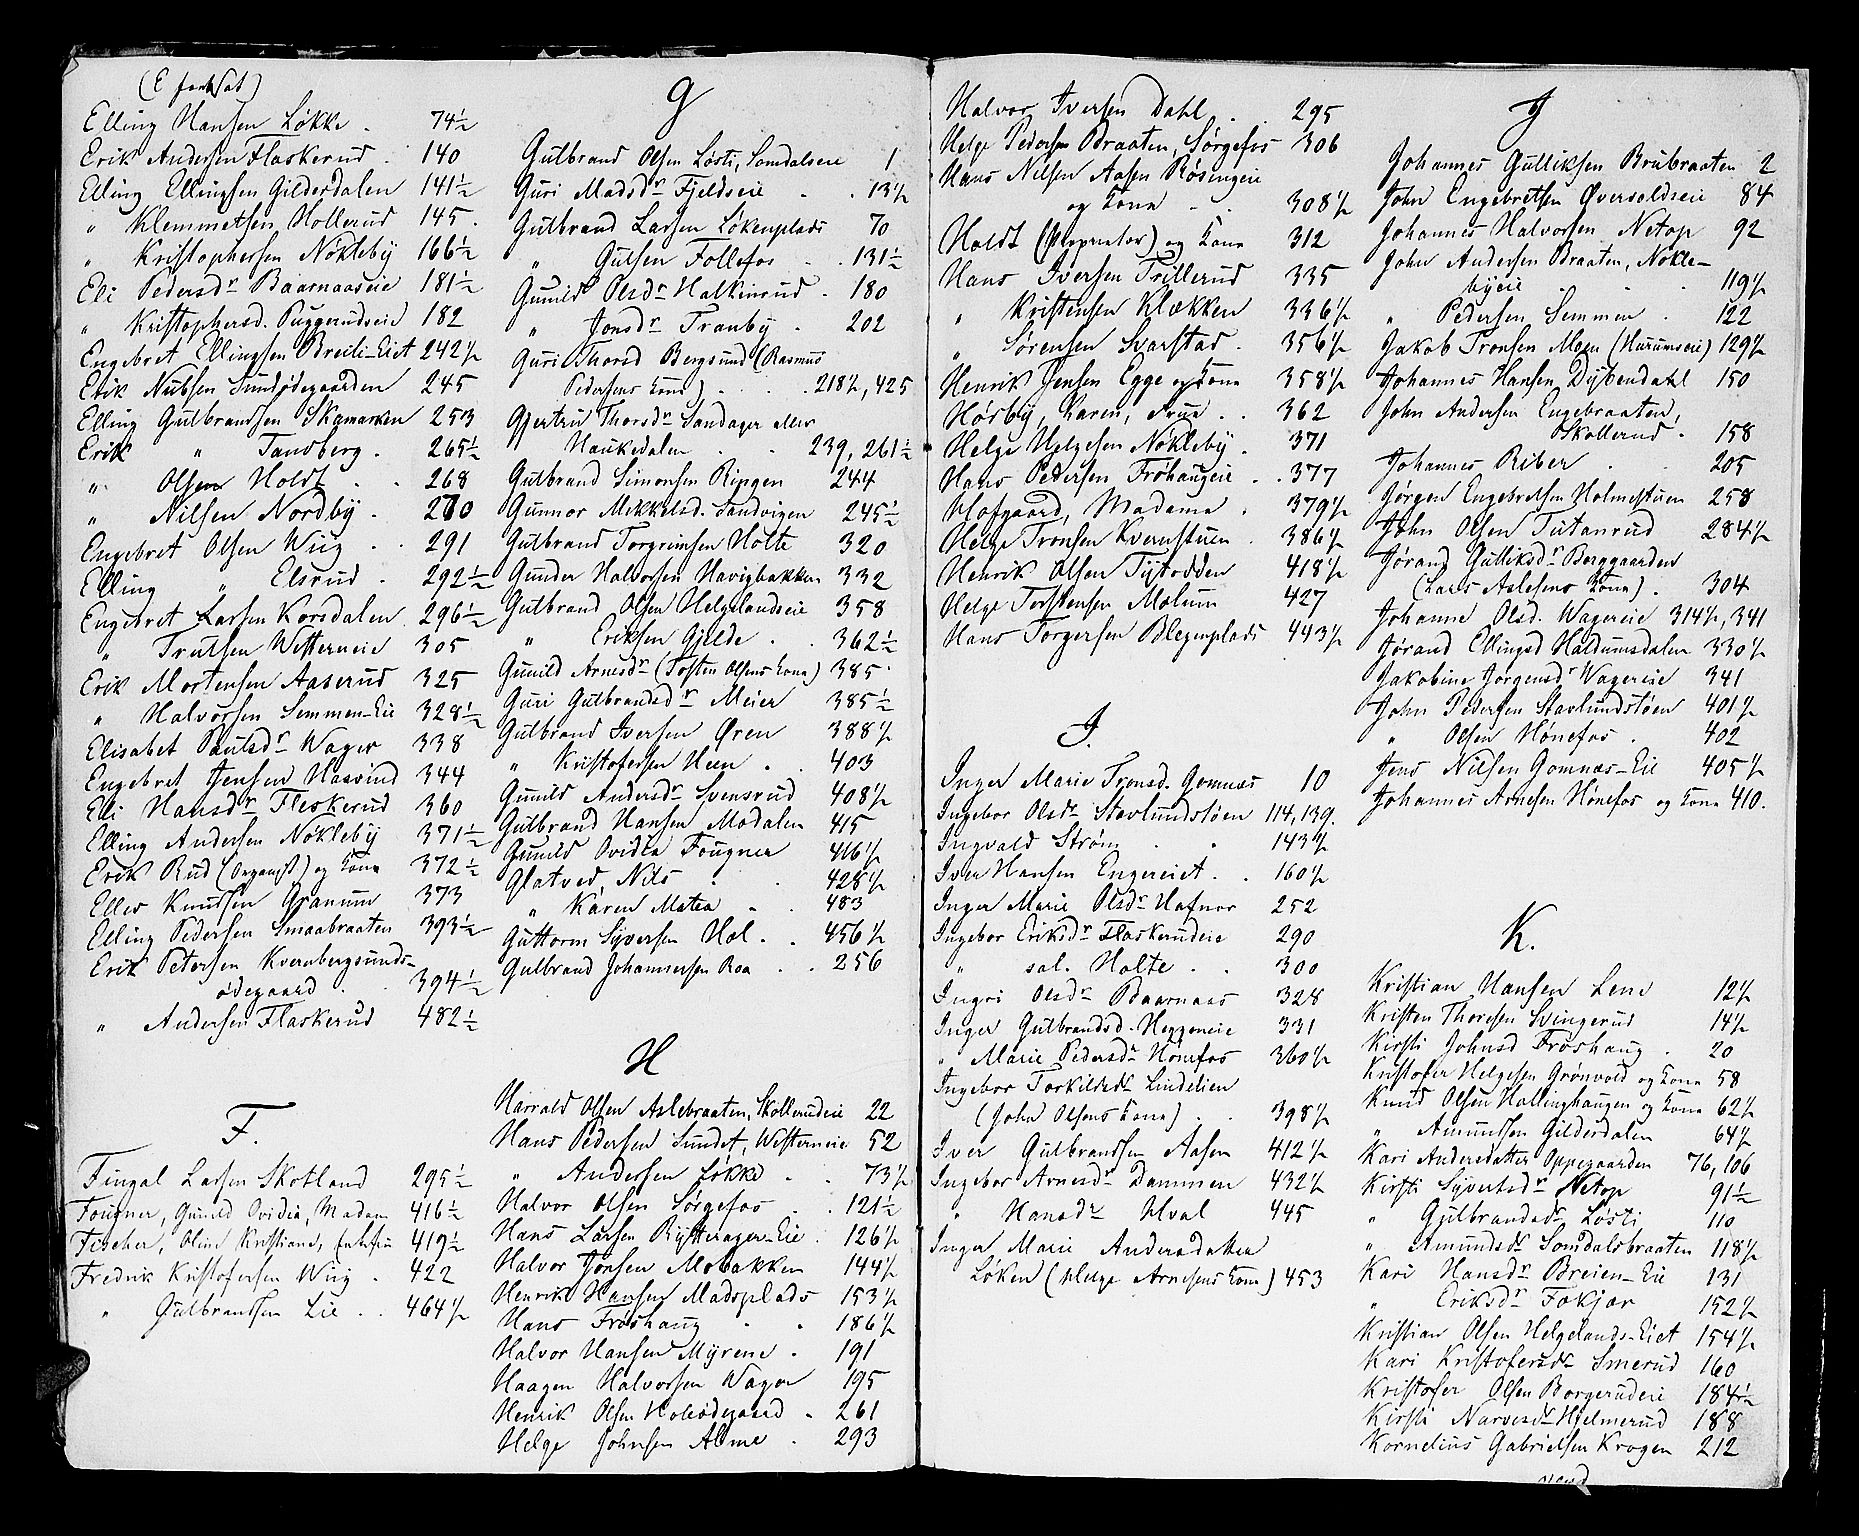 (E fortsat)
Elling Hansen Løkke . 74½
Erik Andersen Flaskerud . 140
Elling Ellingsen Gilderdalen 141½
" Klemmetsen Hollerud 145 .
" Kristophersen Nökleby 166½
Eli Pedersdr Baarnaaseie 181½
" Kristophersd. Puggerudseie 182
Engebret Ellingsen Breili-Eiet 242½
Erik Nubsen Sundødegaarden 245
Elling Gulbrandsen Skamarken 253
Erik " Tandberg . 265½
" Olsen Holdt . . 268
" Nilsen Nordby . 270
Engebret Olsen Wiig . . 291
Elling " Elsrud . 292½
Engebret Larsen Korsdalen 296½
" Trulsen Westerneie 305
Erik Mortensen Aaserud 325
" Halvorsen Semmen-Eie 328½
Elisabet Paulsdr Wager 338
Engebret Jensen Haavind 344
Eli Hansdr Flaskerud 360
Elling Andersen Nökleby 371½
Erik Rud (Organist) og Kone 372½
Eller Knudsen Granum 373
Elling Pedersen Smaabraaten 393½
Erik Petersen Kvernbergsunds-
ødegaard . . 394½
" Andersen Flaskerud 482½
F.
Fingal Larsen Skotland 295½
Fougner, Gunild Ovidia, Madam 416½
Fischer, Oline Kristiane, Enkefru 419½
Fredrik Kristofersen Wiig . 422
" Gulbrandsen Lie . . 464½
G
Gulbrand Olsen Løsti, Somdalseie 1
Guri Madsdr Fjeldseie . . 13½
Gulbrand Larsen Løkenplads 70
" Gulsen Follefos . . 131½
Gunild Olsdr Halkinrud . 180
" Jonsdr Tranby . 202
Guri Thorsd Bergsund (Rasmus
Pedersens Kone) . . . 218½, 425
Gjertru Thorsdr Sandager eller
Haukedalen . . 239, 261½
Gulbrand Simonsen Ringen 244
Gunnor Mikkelsd. Sandvigen 245½
Gulbrand Torgrimsen Holte 320
Gunder Halvorsen Havigbakken 332
Gulbrand Olsen Helgelandseie 358
" Eriksen Gjelde . . 362½
Gunild Arnesdr (Tosten Olsens Kone) 385
Guri Gulbrandsdr Meier 385½
Gulbrand Iversen Øren 388½
" Kristofersen Heen . . 403
Gunild Andersdr Svensrud 408½
Gulbrand Hansen Modalen 415
Gunild Ovidia Fougner 416½
Glatved, Nils . . 428½
" Karen Matea . . 483
Guttorm Syversen Hol . . 456½
Gulbrand Johannersen Roa . . 256
H
Harrald Olsen Aslebraaten, Skollerudeie 22
Hans Pedersen Sundet, Westerneie 52
" Andersen Løkke . . 73½
Halvor Olsen Sørgefos . . 121½
Hans Larsen Rytterager-Eie . 126½
Halvor Jonsen Mobakken 144½
Henrik Hansen Madsplads 153½
Hans Froshaug . . 186½
Halvor Hansen Myrene . 191
Haagen Halvorsen Wager 195
Henrik Olsen Holeødegaard . 261
Helge Johnsen Alme . 293
Halvor Iversen Dahl . . 295
Helge Pedersen Braaten, Sørgefos 306
Hans Nilsen Aasen Røsengeie
og Kone . . 308½
Holdt (Proprietær) og Kone 312
Hans Iversen Trillerud 335
" Kristensen Klækken 336½
" Sørensen Svarstad . 356½
Henrik Jensen Egge og Kone 358½
Høsby, Karen, Frue . . 362
Helge Helgesen Nökleby . 371
Hans Pedersen Frohaugeie . . 377
Hofgaard, Madame . 379½
Helge Tronsen Kvernstuen . 386½
Henrik Olsen Tytodden 418½
Helge Torstensen Moeum 427
Hans Torgersen Blegenplads 443½
I.
Inger Marie Tronsd. Gomnæs 10
Ingebor Olsdr Stavlundstøen 114, 139.
Ingvald Strøm . . 143½
Iver Hansen Engereiet . . 160½
Inger Marie Olsdr Hafnor 252
Ingebor Eriksdr Flaskerudeie 290
" sal. Holte . . 300
Ingri Olsdr Baarnaas 328
Inger Gulbrandsd. Heggeneie 331
" Marie Pedersdr Hønefos 360½
Ingebor Torkildsdr Lindelien
(John Olsens Kone) . . 398½
Iver Gulbrandsen Aasen 412½
Ingebor Arnesdr Dammen 432½
" Hansdr Hval 445
Inger Marie Andersdatter
Løken (Helge Arnesens Kone) 453
J
Johannes Gulliksen Brubraaten 2
John Engebretsen Øversoldseie 84
Johannes Halvorsen Netop 92
John Andersen Braaten, Nökle-
byeie . . . 119½
" Pedersen Semmen . 122
Jakob Tronsen Moen (Harumseie) 129½
Johannes Hansen Dybendahl 150
John Andersen Engebraaten,
Skollerud . 158
Johannes Riber . . 205
Jørgen Engebretsen Holmestuen 258
John Olsen Tutanrud 284½
Jørand Gulliksdr Berggaarden
(Lars Aslesens Kone) . 304
Johanne Olsd. Wagereie 314½, 341
Jørand Ellingsd Haldumsdalen 330½
Jakobine Jørgensdr Wagereie 341
John Pedersen Stavlundstøen 401½
" Olsen Hönefos . 402
Jens Nilsen Gomnæs-Eie 405½
Johannes Arnesen Hönefos og Kone 410.
K.
Kristian Hansen Lene 12½
Kristen Thoresen Svingerud 14½
Kirsti Johnsd Froshaug . 20
Kristofer Helgesen Grønvold og Kone 58
Knud Olsen Hallinghaugen og Kone 62½
" Amundsen Gilderdalen 64½
Kari Andersdatter Oppegaarden 76, 106
Kirsti Syvertsdr Netop 91½
" Gulbrandsdr Løsti 110
" Amundsdr Somdalsbraaten 118½
Kari Hansdr Breien-Eie 131
" Eriksdr Fokjær 152½
Kristian Olsen Helgelands-Eiet 154½
Kari Kristofersdr Smerud 160
Kristofer Olsen Borgerudeie 184½
Kirsti Narvesdr Hjelmerud 188
Kornelius Gabrielsen Krogen 212
vend